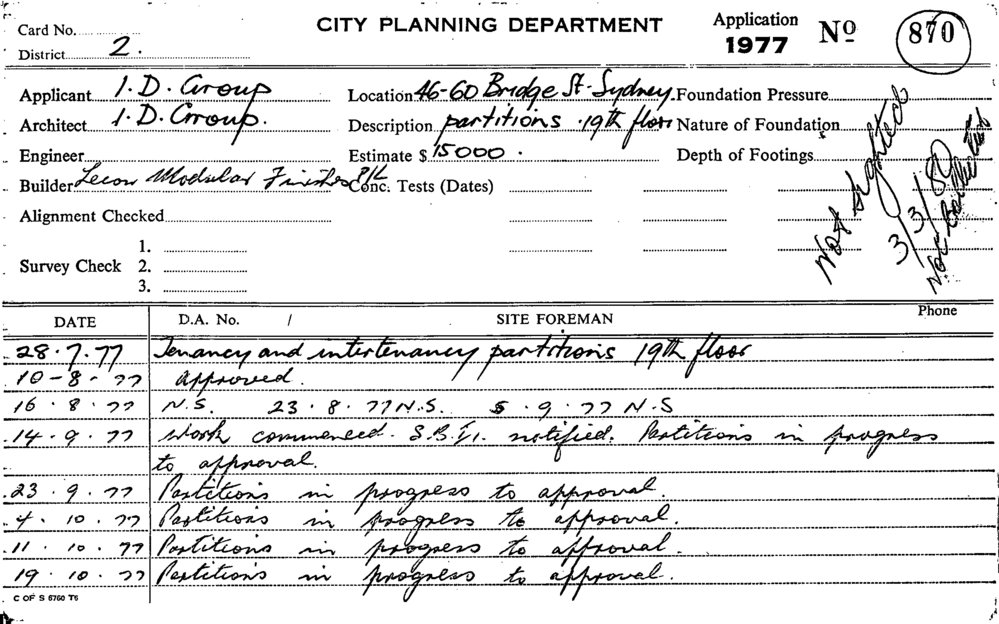 Card No.
CITY PLANNING DEPARTMENT
Application
1977
No
870
District 2.
Applicant I.D. Group
Location 46-60 Bridge St. Sydney
Foundation Pressure
Architect I.D. Group.
Description partitions 19th floor
Nature of Foundation
Engineer
Estimate $ 15000.
Depth of Footings
Builder Lecon Modular Finishes P/L
Conc. Tests (Dates)
Alignment Checked
Survey Check
1.
2.
3.
Not sighted
3/3/80
DATE
D.A. No. /
SITE FOREMAN
Phone
28.7.77 Tenancy and intertenancy partitions 19th floor
10-8-77 approved.
16.8.77 N.S. 23.8.77 N.S. 5.9.77 N.S
14.9.77 Work commenced. S.B.I. notified. Partitions in progress
to approval.
23.9.77 Partitions in progress to approval.
4.10.77 Partitions in progress to approval.
11.10.77 Partitions in progress to approval.
19.10.77 Partitions in progress to approval.
C OF S 6760 T6